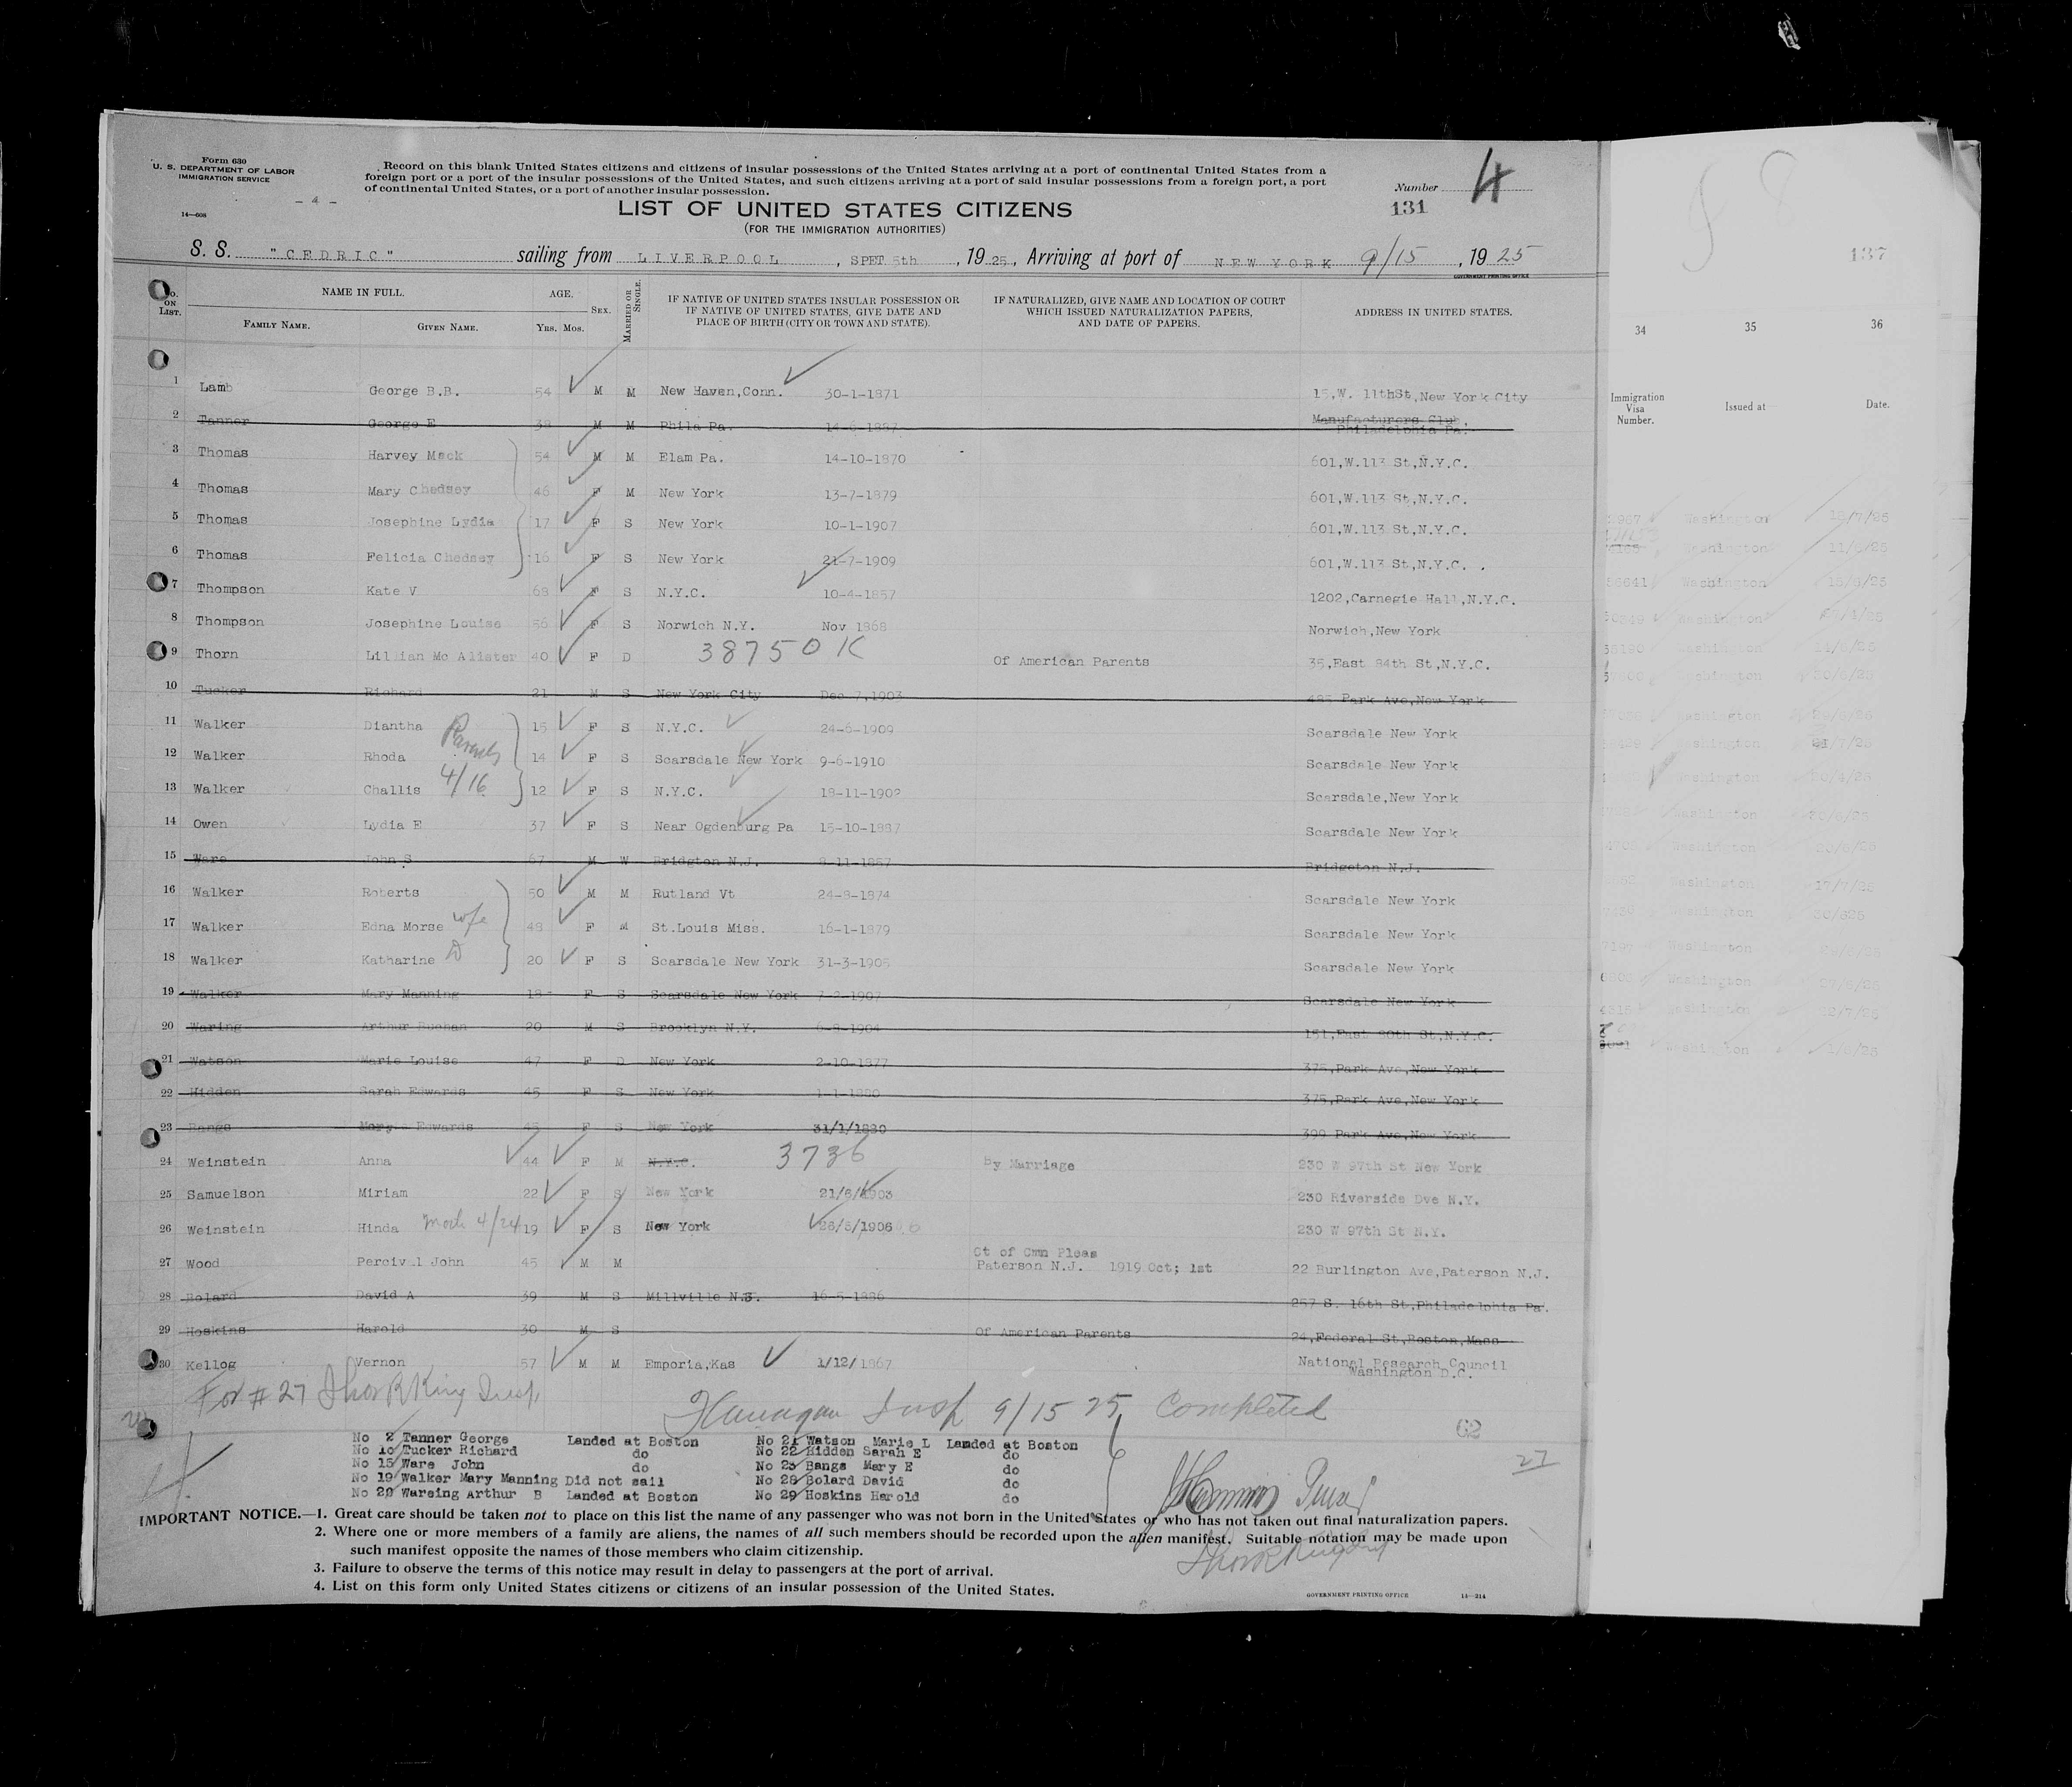 Form 630
U. S. DEPARTMENT OF LABOR
IMMIGRATION SERVICE
14—608
- 4 -
Record on this blank United States citizens and citizens of insular possessions of the United States arriving at a port of continental United States from a
foreign port or a port of the insular possessions of the United States, and such citizens arriving at a port of said insular possessions from a foreign port, a port
of continental United States, or a port of another insular possession.
Number 4
131
LIST OF UNITED STATES CITIZENS
(FOR THE IMMIGRATION AUTHORITIES)
S. S. "CEDRIC" sailing from LIVERPOOL, SPET 5th, 1925, Arriving at port of NEW YORK 9/15, 1925
GOVERNMENT PRINTING OFFICE
No. ON LIST. NAME IN FULL. AGE. SEX. MARRIED OR SINGLE. IF NATIVE OF UNITED STATES INSULAR POSSESSION OR IF NATIVE OF UNITED STATES, GIVE DATE AND PLACE OF BIRTH (CITY OR TOWN AND STATE). IF NATURALIZED, GIVE NAME AND LOCATION OF COURT WHICH ISSUED NATURALIZATION PAPERS, AND DATE OF PAPERS. ADDRESS IN UNITED STATES.
FAMILY NAME. GIVEN NAME. YRS. MOS.
1 Lamb George B.B. 54 M M New Haven,Conn. 30-1-1871 15,W. 11thSt,New York City
2 Tanner George E 38 M M Phila Pa. 14-6-1887 Manufacturers Club,
Philadelphia Pa.
3 Thomas Harvey Mack 54 M M Elam Pa. 14-10-1870 601,W.113 St,N.Y.C.
4 Thomas Mary Chedsey 46 F M New York 13-7-1879 601,W.113 St,N.Y.C.
5 Thomas Josephine Lydia 17 F S New York 10-1-1907 601,W.113 St,N.Y.C.
6 Thomas Felicia Chedsey 16 F S New York 21-7-1909 601,W.113 St,N.Y.C.
7 Thompson Kate V 68 F S N.Y.C. 10-4-1857 1202,Carnegie Hall,N.Y.C.
8 Thompson Josephine Louise 56 F S Norwich N.Y. Nov 1868 Norwich,New York
9 Thorn Lillian Mc Alister 40 F D 38750 K Of American Parents 35,East 84th St,N.Y.C.
10 Tucker Richard 21 M S New York City Dec 7,1903 485 Park Ave,New York
11 Walker Diantha 15 F S N.Y.C. 24-6-1909 Scarsdale New York
12 Walker Rhoda Parents 14 F S Scarsdale New York 9-6-1910 Scarsdale New York
13 Walker Challis 4/16 12 F S N.Y.C. 18-11-1902 Scarsdale,New York
14 Owen Lydia E 37 F S Near Ogdenburg Pa 15-10-1887 Scarsdale New York
15 Ware John S 67 M W Bridgton N.J. 8-11-1857 Bridgeton N.J.
16 Walker Roberts 50 M M Rutland Vt 24-8-1874 Scarsdale New York
17 Walker Edna Morse wife 48 F M St.Louis Miss. 16-1-1879 Scarsdale New York
18 Walker Katharine D 20 F S Scarsdale New York 31-3-1905 Scarsdale New York
19 Walker Mary Manning 18 F S Scarsdale New York 7-2-1907 Scarsdale New York
20 Waring Arthur Buchan 20 M S Brooklyn N.Y. 6-8-1904 151,East 80th St,N.Y.C.
21 Watson Marie Louise 47 F D New York 2-10-1877 375,Park Ave,New York
22 Hidden Sarah Edwards 45 F S New York 1-1-1880 375,Park Ave,New York
23 Bangs Mary Edwards 45 F S New York 31/1/1880 399 Park Ave,New York
24 Weinstein Anna 44 F M N.Y.C. 3736 by Marriage 230 W 97th St New York
25 Samuelson Miriam 22 F S New York 21/6/1903 230 Riverside Dve N.Y.
26 Weinstein Hinda Moth 4/24 19 F S New York 26/5/1906 230 W 97th St N.Y.
27 Wood Percival John 45 M M Ct of Cmn Pleas
Paterson N.J. 1919 Oct; 1st 22 Burlington Ave,Paterson N.J.
28 Bolard David A 39 M S Millville N.J. 16-5-1886 257 S. 16th St,Philadelphia Pa.
29 Hoskins Harold 30 M S Of American Parents 24,Federal St,Boston,Mass
30 Kellog Vernon 57 M M Emporia,Kas 1/12/1867 National Research Council
Washington D.C.
For #27 Thor R King Insp.
Flanagan Insp 9/15 25 Completed
62
27
No 2 Tanner George Landed at Boston No 21 Watson Marie L Landed at Boston
No 10 Tucker Richard do No 22 Hidden Sarah E do
No 15 Ware John do No 23 Bangs Mary E do
No 19 Walker Mary Manning Did not sail No 28 Bolard David do
No 20 Wareing Arthur B Landed at Boston No 29 Hoskins Harold do
IMPORTANT NOTICE.—1. Great care should be taken not to place on this list the name of any passenger who was not born in the United States or who has not taken out final naturalization papers.
2. Where one or more members of a family are aliens, the names of all such members should be recorded upon the alien manifest. Suitable notation may be made upon
such manifest opposite the names of those members who claim citizenship.
3. Failure to observe the terms of this notice may result in delay to passengers at the port of arrival.
4. List on this form only United States citizens or citizens of an insular possession of the United States.
GOVERNMENT PRINTING OFFICE 14—314
137
34 35 36
Immigration Visa Number. Issued at Date.
Washington
Washington 11/6/25
Washington 15/6/25